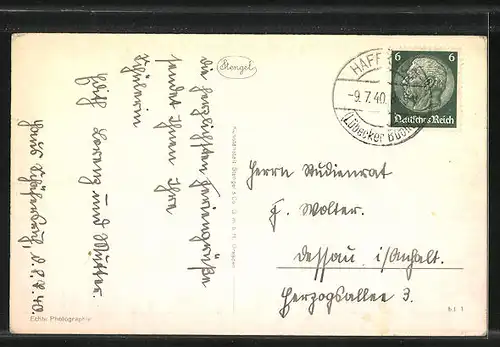 Haus Lühlenberg, d. 9. 7. 40.
Die herzlichsten Feriengrüße
sendet Ihnen Ihre
Schülerin
Lorenz und Mutter.
Stengel
Kunstanstalt Stengel & Co. G. m. b. H. Dresden
HAFF
-9.7.40.
(Lübecker Bucht
6 6
Deutsches Reich
Herrn Studienrat
F. Wolter.
Dessau i/Anhalt.
Herzogsallee 3.
Echte Photographie